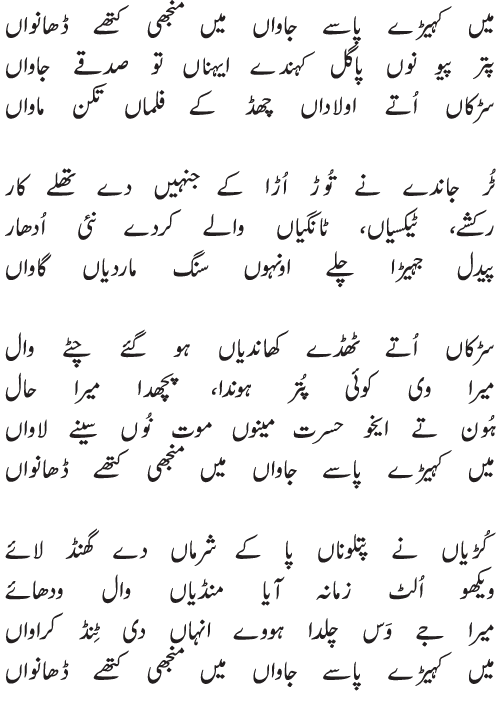 میں کہیڑے پاسے جاواں میں منجھی کتھے ڈھانواں
پتر پیو نوں پاگل کہندے ایہناں تو صدقے جاواں
سڑکاں اُتے اولاداں چھڈ کے فلماں تکن ماواں
ٹُر جاندے نے تُوڑ اُڑا کے جنہیں دے تھلے کار
رکشے، ٹیکسیاں، ٹانگیاں والے کردے نئی اُدھار
پیدل جہیڑا چلے اونہوں سنگ ماردیاں گاواں
سڑکاں اُتے ٹھڈے کھاندیاں ہو گئے چٹے وال
میرا وی کوئی پُتر ہوندا، پچھدا میرا حال
ہُون تے ایخو حسرت مینوں موت نُوں سینے لاواں
میں کہیڑے پاسے جاواں میں منجھی کتھے ڈھانواں
کُڑیاں نے پتلوناں پا کے شرماں دے گھنڈ لائے
ویکھو اُلٹ زمانہ آیا منڈیاں وال ودھائے
میرا جے وَس چلدا ہووے انہاں دی ٹِنڈ کراواں
میں کہیڑے پاسے جاواں میں منجھی کتھے ڈھانواں